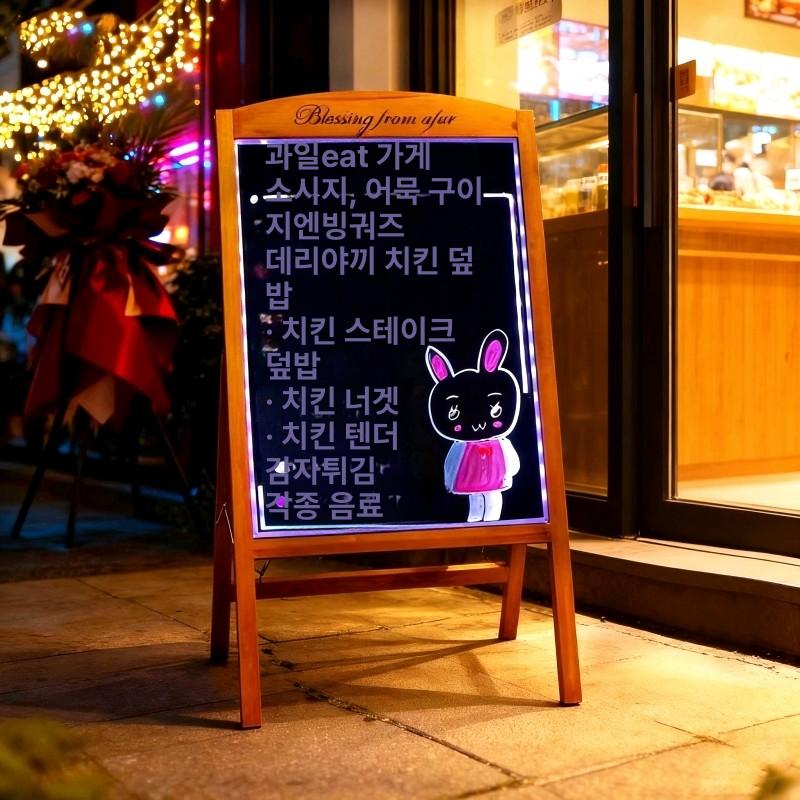 Blessing from afar
과일eat 가게
소시지, 어묵 구이
지엔빙궈즈
데리야끼 치킨 덮
밥
· 치킨 스테이크
덮밥
· 치킨 너겟
· 치킨 텐더
감자튀김
각종 음료